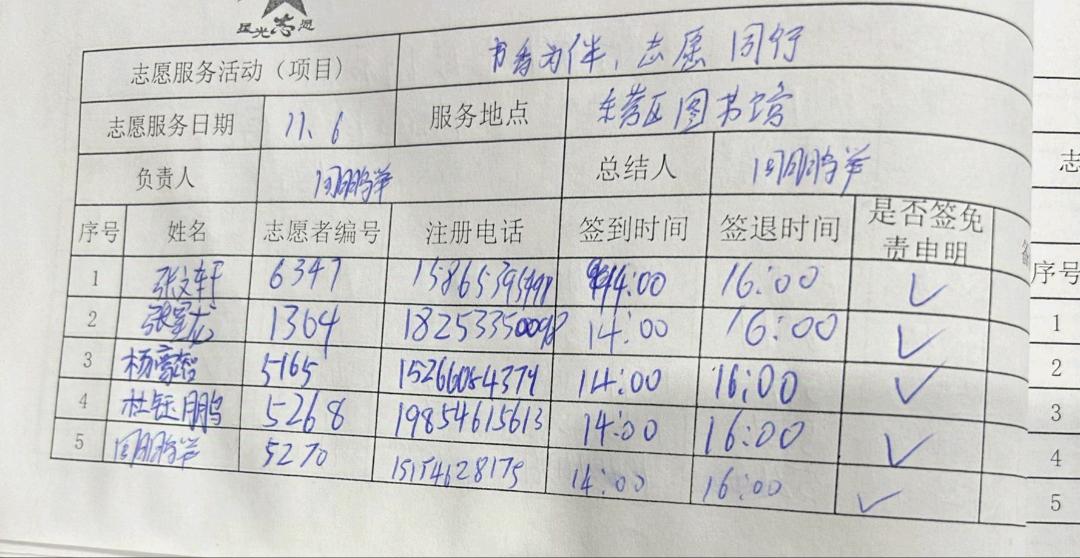 星光志愿
志愿服务活动（项目） 书香为伴，志愿同行
志愿服务日期 11.6 服务地点 东营区图书馆
负责人 周鹏举 总结人 周鹏举
序号 姓名 志愿者编号 注册电话 签到时间 签退时间 是否签免责申明
1 张文轩 6347 14:00 16:00 ✓
2 1364 14:00 16:00 ✓
3 杨豪智 5165 14:00 16:00 ✓
4 杜钰鹏 5268 19854615613 14:00 16:00 ✓
5 周鹏举 5270 15154628175 14:00 16:00 ✓
志
序号
1
2
3
4
5